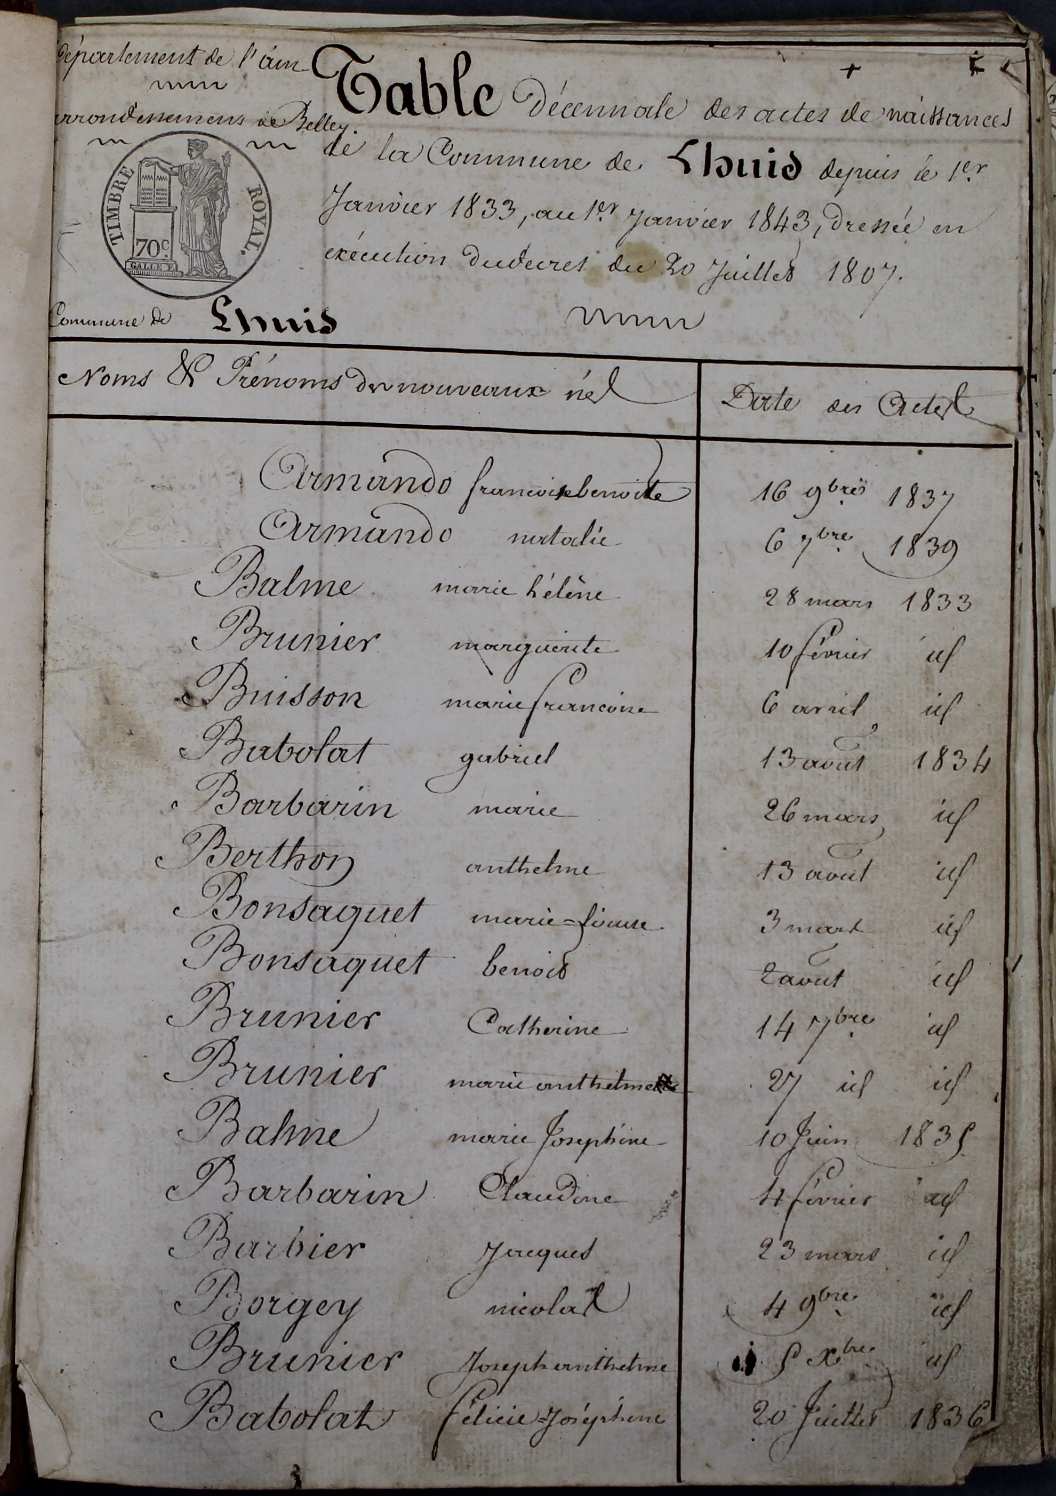 département de l'ain
arrondissement de Belley.
Table Décennale des actes de naissances
de la Commune de Lhuis depuis le 1er
Janvier 1833, au 1er Janvier 1843, dressée en
exécution du décret du 20 Juillet 1807.
TIMBRE ROYAL.
70c
Commune de Lhuis
Noms & Prénoms des nouveaux nés Date des Actes
Armando francoise benoite 16 9bre 1837
Armando natalie 6 7bre 1839
Balme marie hélène 28 mars 1833
Brunier marguerite 10 février id
Buisson marie francoise 6 avril id
Babolat gabriel 13 août 1834
Barbarin marie 26 mars id
Berthon anthelme 13 août id
Bonsaquet marie= 3 mars id
Bonsaquet benoit 2 août id
Brunier Catherine 14 7bre id
Brunier marie anthelme 27 id id
Balme marie Joséphine 10 Juin 1835
Barbarin Claudine 4 février id
Barbier Jacques 23 mars id
Borgey nicolas 4 9bre id
Brunier Joseph anthelme 5 Xbre id
Babolat félicie=Joséphine 20 Juillet 1836